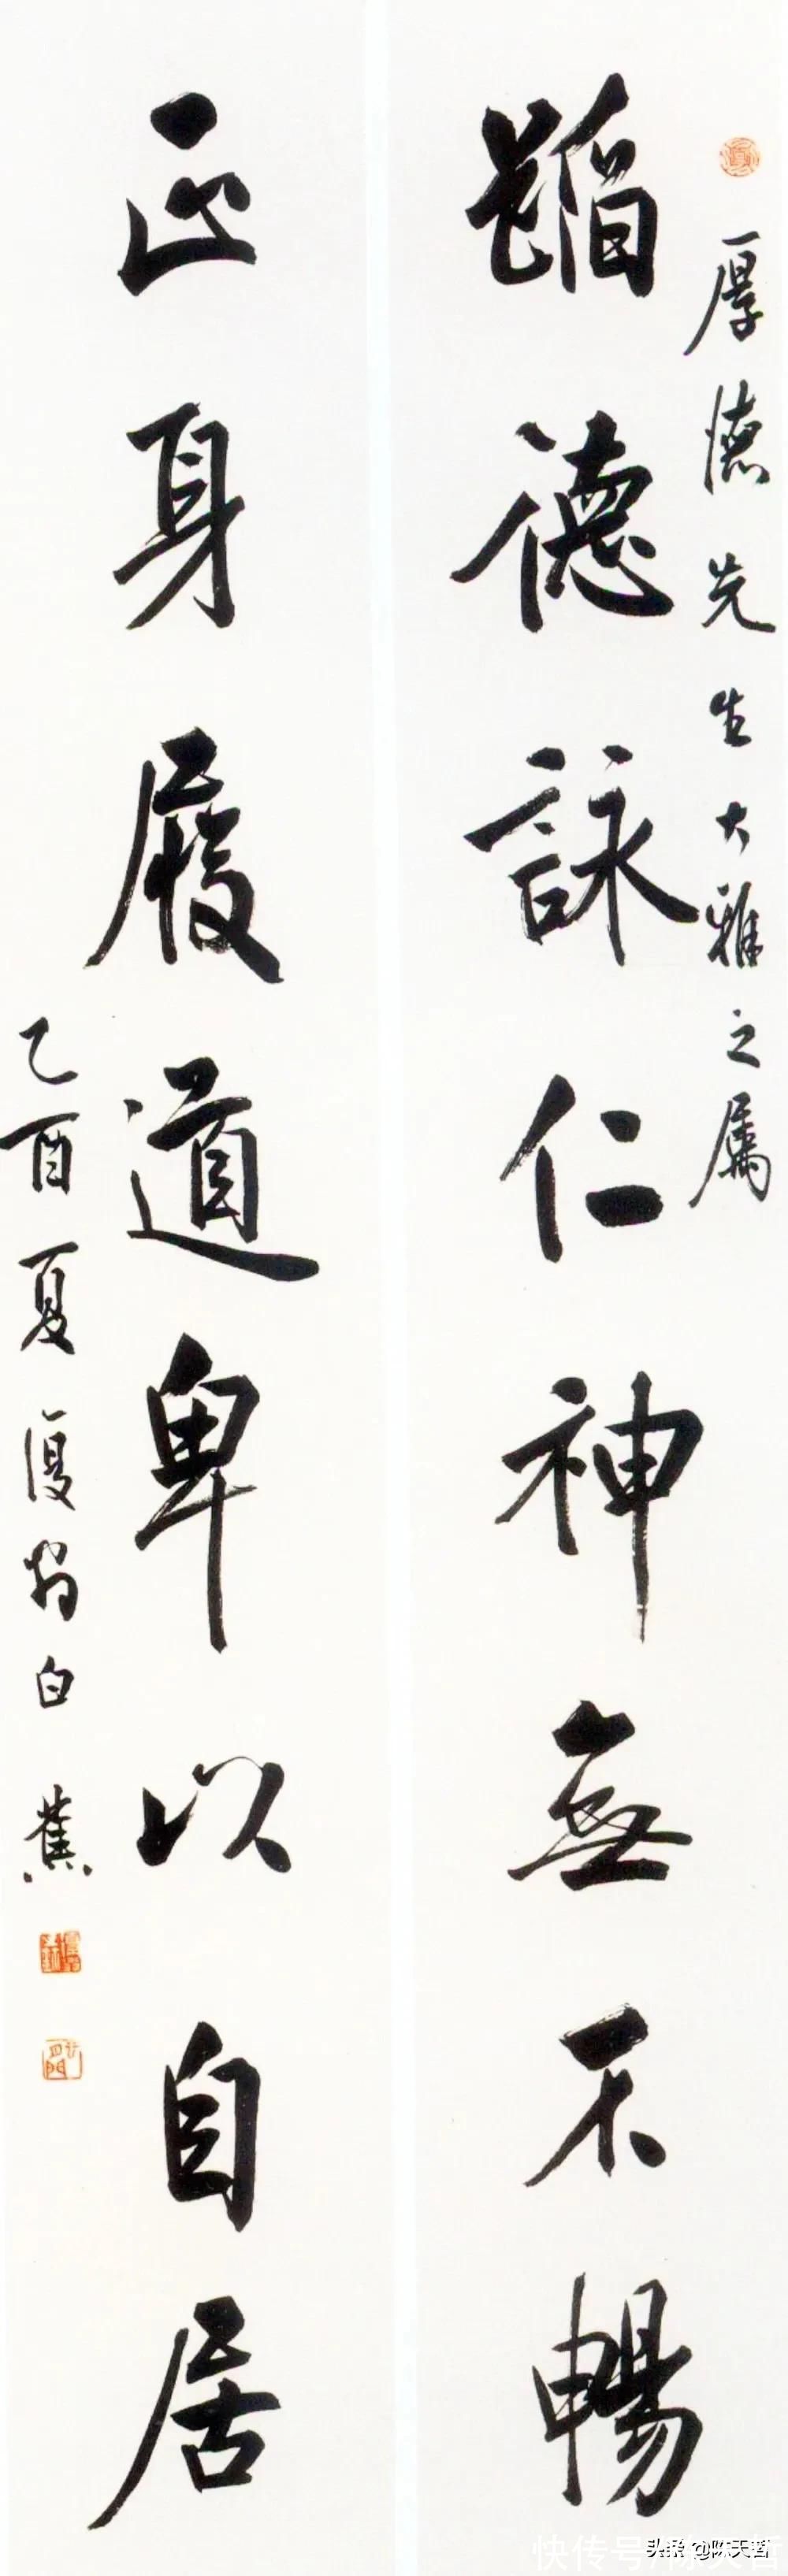 厚德先生大雅之属
蹈德詠仁神無不暢
正身履道卑以自居
乙酉夏復翁白蕉
头条 @陈天哲